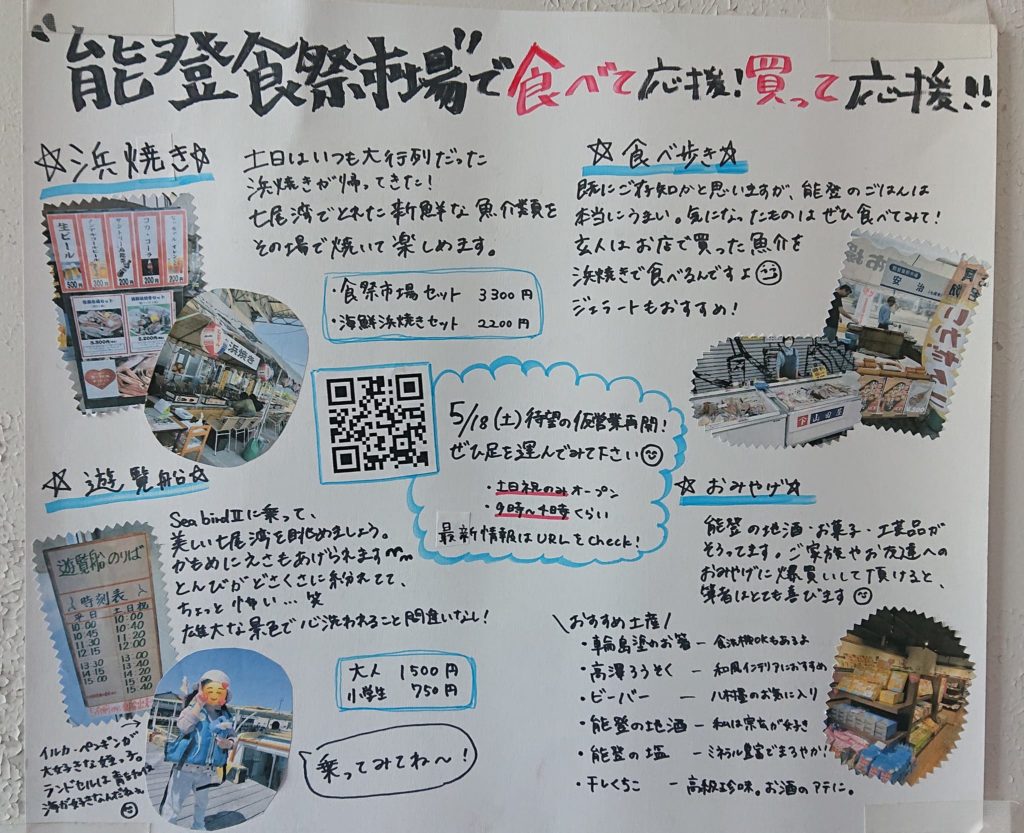 "能登食祭市場"で食べて応援!買って応援!!
☆浜焼き☆
土日はいつも大行列だった
浜焼きが帰ってきた!
七尾湾でとれた新鮮な魚介類を
その場で焼いて楽しめます。
・食祭市場セット 3300円
・海鮮浜焼きセット 2200円
生ビール
500円
300円
200円
200円
200円
浜焼き
☆食べ歩き☆
既にご存知かと思いますが、能登のごはんは
本当にうまい。気になったものはぜひ食べてみて!
玄人はお店で買った魚介を
浜焼きで食べるんですよ
ジェラートもおすすめ!
安治
山田屋
5/18(土)待望の仮営業再開!
ぜひ足を運んでみて下さい
・土日祝のみオープン
・9時〜4時くらい
最新情報はURLをCheck!
☆遊覧船☆
Sea birdⅡに乗って、
美しい七尾湾を眺めましょう。
かもめにえさもあげられます
とんびがどさくさに紛れてて、
ちょっと怖い…笑
雄大な景色で心洗われること間違いなし!
遊覧船のりば
時刻表
平日 土日祝
10:00 10:00
10:45 10:40
11:30 11:20
12:15 12:00
13:30 13:20
14:15 14:00
15:00 14:40
大人 1500円
小学生 750円
乗ってみてね〜!
イルカ・ペンギンが
大好きな姪っ子。
ランドセルは青を
海が好きなんだねぇ
☆おみやげ☆
能登の地酒・お菓子・工芸品が
そろってます。ご家族やお友達への
おみやげに爆買いして頂けると、
筆者はとても喜びます
\おすすめ土産/
・輪島塗のお箸 — 食洗機OKもあるよ
・高澤ろうそく — 和風インテリアにおすすめ
・ビーバー — 八村塁のお気に入り
・能登の地酒 — 私は宗玄が好き
・能登の塩 — ミネラル豊富でまろやか!
・干しくちこ — 高級珍味。お酒のアテに。